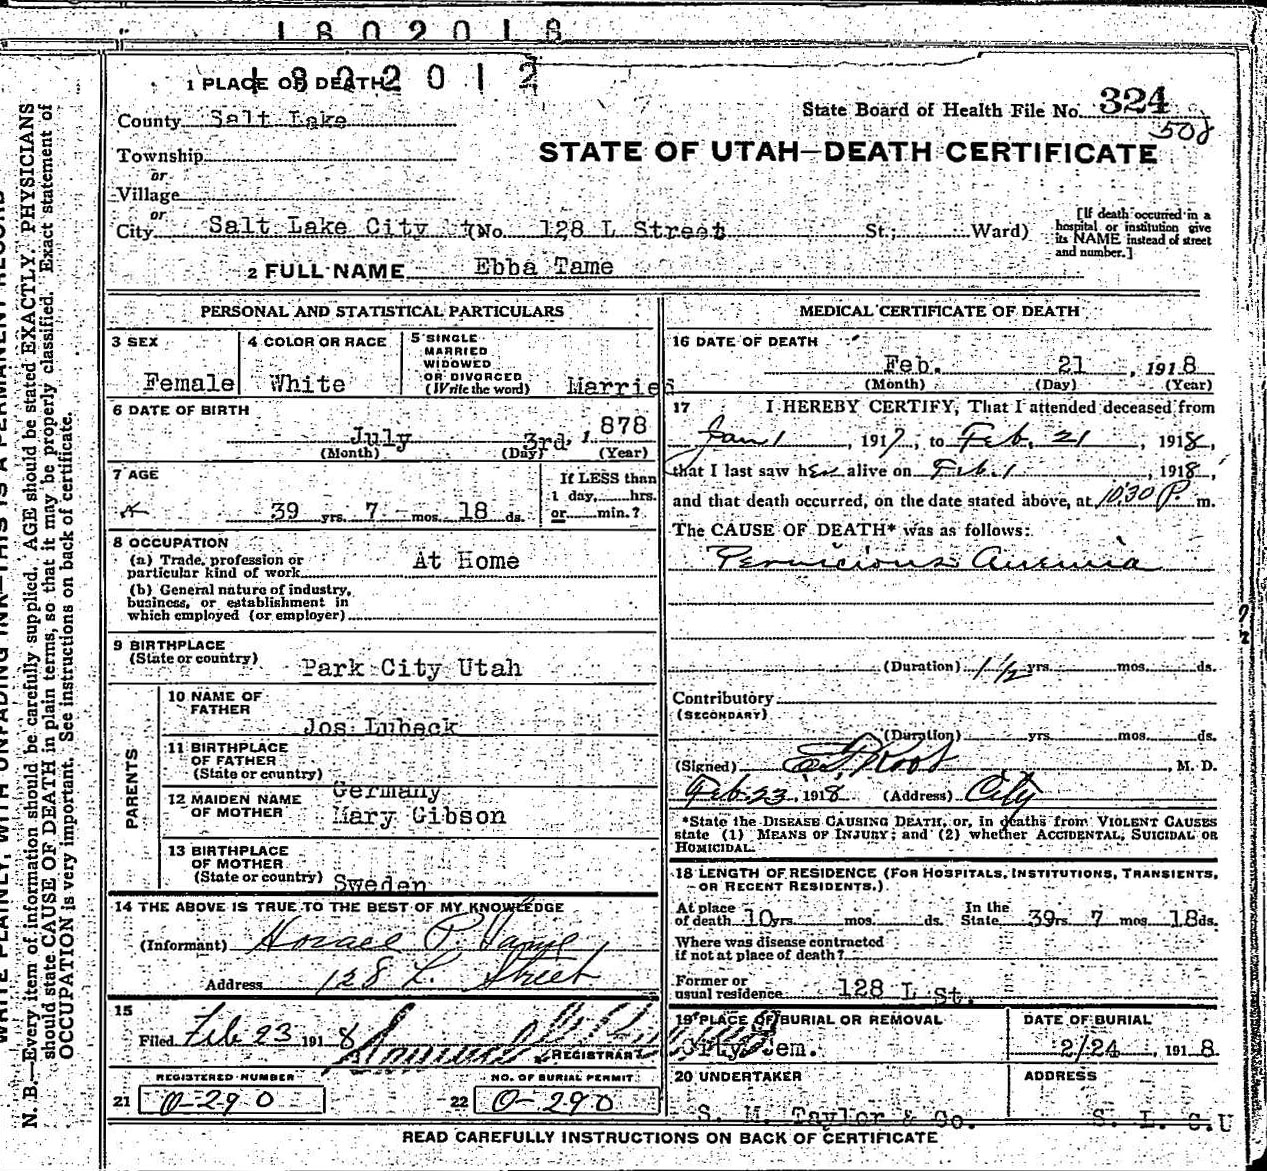 1802018
1 PLACE OF DEATH 1802012
County Salt Lake
State Board of Health File No. 324
508
Township
or
Village
or
City Salt Lake City (No. 128 L Street St; Ward)
STATE OF UTAH—DEATH CERTIFICATE
[If death occurred in a
hospital or institution give
its NAME instead of street
and number.]
2 FULL NAME Ebba Tame
PERSONAL AND STATISTICAL PARTICULARS
3 SEX Female
4 COLOR OR RACE White
5 SINGLE
MARRIED
WIDOWED
OR DIVORCED
(Write the word) Married
6 DATE OF BIRTH
July 3rd, 1878
(Month) (Day) (Year)
7 AGE
39 yrs. 7 mos. 18 ds.
If LESS than
1 day, hrs.
or min.?
8 OCCUPATION
(a) Trade, profession or
particular kind of work At Home
(b) General nature of industry,
business, or establishment in
which employed (or employer)
9 BIRTHPLACE
(State or country) Park City Utah
PARENTS
10 NAME OF
FATHER
Jos Lubeck
11 BIRTHPLACE
OF FATHER
(State or country)
Germany
12 MAIDEN NAME
OF MOTHER Mary Gibson
13 BIRTHPLACE
OF MOTHER
(State or country) Sweden
14 THE ABOVE IS TRUE TO THE BEST OF MY KNOWLEDGE
(Informant) Horace P. Tame,
Address 128 L. Street
15
Filed Feb 23 1918
REGISTRAR
REGISTERED NUMBER
21 0-290
NO. OF BURIAL PERMIT
22 0-290
MEDICAL CERTIFICATE OF DEATH
16 DATE OF DEATH
Feb. 21, 1918
(Month) (Day) (Year)
17 I HEREBY CERTIFY, That I attended deceased from
Jan 1, 1917, to Feb. 21, 1918,
that I last saw her alive on Feb. 1, 1918,
and that death occurred, on the date stated above, at 10:30 P. m.
The CAUSE OF DEATH* was as follows:
Pernicious Anemia
(Duration) 1 1/2 yrs. mos. ds.
Contributory
(SECONDARY)
(Duration) yrs. mos. ds.
(Signed) Root, M. D.
Feb. 23, 1918 (Address) City
*State the DISEASE CAUSING DEATH, or, in deaths from VIOLENT CAUSES
state (1) MEANS OF INJURY; and (2) whether ACCIDENTAL, SUICIDAL OR
HOMICIDAL.
18 LENGTH OF RESIDENCE (FOR HOSPITALS, INSTITUTIONS, TRANSIENTS,
OR RECENT RESIDENTS.)
At place
of death 10 yrs. mos. ds. In the State 39 rs 7 mos 18 ds.
Where was disease contracted
if not at place of death?
Former or
usual residence 128 L St.
19 PLACE OF BURIAL OR REMOVAL
City Cem.
DATE OF BURIAL
2/24, 1918
20 UNDERTAKER
S. M. Taylor & Co.
ADDRESS
S. L. C. U
READ CAREFULLY INSTRUCTIONS ON BACK OF CERTIFICATE
WRITE PLAINLY, WITH UNFADING INK—THIS IS A PERMANENT RECORD
N. B.—Every item of information should be carefully supplied. AGE should be stated EXACTLY. PHYSICIANS
should state CAUSE OF DEATH in plain terms, so that it may be properly classified. Exact statement of
OCCUPATION is very important. See instructions on back of certificate.